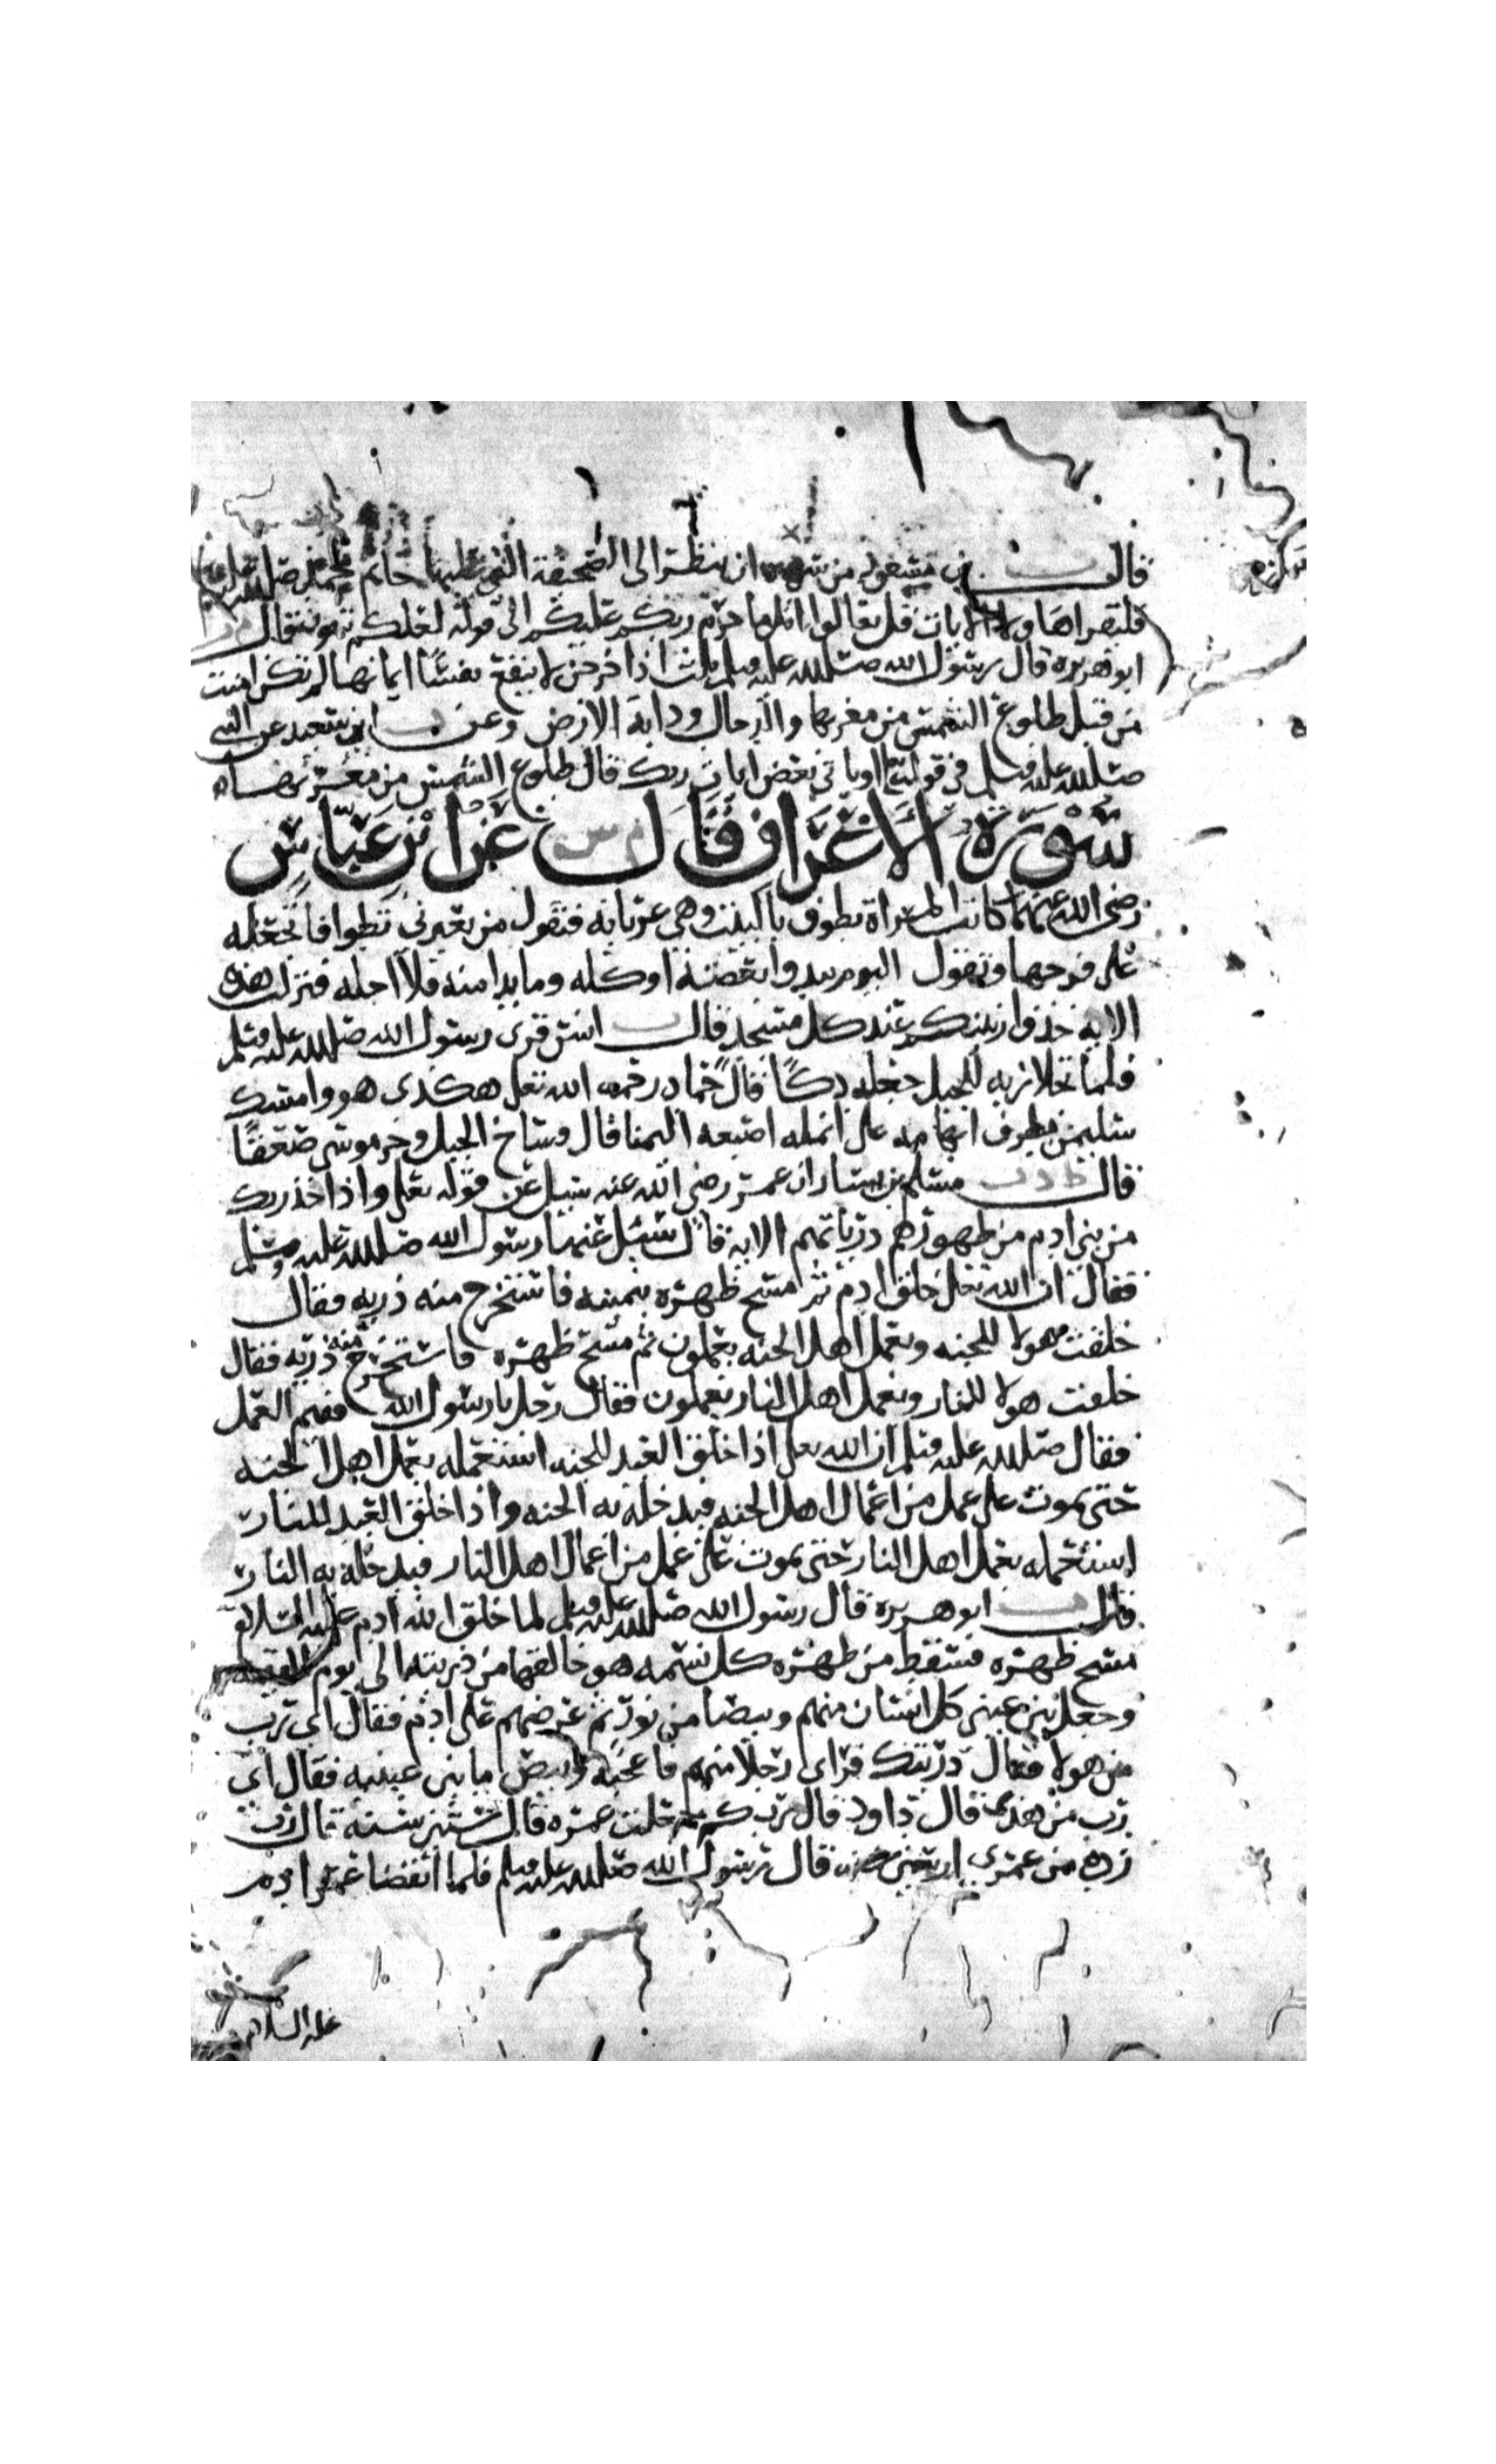 قال ت ابن مسعود من سره ان ينظر الى الصحيفة التي عليها خاتم محمد صلى الله عليه
فليقرا هاولا الايات قل تعالوا اتل ما حرم ربكم عليكم الى قوله لعلكم تتقون قال م ت
ابو هريرة قال رسول الله صلى الله عليه وسلم ثلاث اذا خرجن لا ينفع نفسًا ايمانها لم تكن امنت
من قبل طلوع الشمس من مغربها والدجال ودابة الارض وعن ت ابي سعيد عن النبي
صلى الله عليه وسلم في قوله تعلى او ياتي بعض ايات ربك قال طلوع الشمس من مغربها
سورة الاعراف قال م س عن ابن عباس
رضي الله عنهما كانت المراة تطوف بالبيت وهي عريانه فتقول من يعيرني تطوافا تجعله
على فرجها وتقول اليوم يبدوا بعضه او كله وما بدا منه فلا احله فنزلت هذه
الايه خذوا زينتكم عند كل مسجد قال ت انس قرى رسول الله صلى الله عليه وسلم
فلما تجلا ربه للجبل جعله دكًا قال حماد رحمه الله تعلى هكذى هو وامسك
سليمن بطرف ابهامه على انمله اصبعه اليمنا قال وساخ الجبل وخر موسى صعقًا
قال ط د ت مسلم بن يسار ان عمر رضي الله عنه سيل عن قوله تعلى واذ اخذ ربك
من بني ادم من ظهورهم ذرياتهم الايه قال سئل عنها رسول الله صلى الله عليه وسلم
فقال ان الله تعلى خلق ادم ثم مسح ظهره بيمينه فاستخرج منه ذريه فقال
خلقت هولا للجنه وبعمل اهل الجنه يعملون ثم مسح ظهره فاستخرج منه ذريه فقال
خلقت هولا للنار وبعمل اهل النار يعملون فقال رجل يا رسول الله ففيم العمل
فقال صلى الله عليه وسلم ان الله تعلى اذا خلق العبد للجنه استعمله بعمل اهل الجنه
حتى يموت على عمل من اعمال اهل الجنه فيدخله به الجنه واذا خلق العبد للنار
استعمله بعمل اهل النار حتى يموت على عمل من اعمال اهل النار فيدخله به النار
قال ت ابو هريره قال رسول الله صلى الله عليه وسلم لما خلق الله ادم عليه السلام
مسح ظهره فسقط من ظهره كل نسمه هو خالقها من ذريته الى يوم القيمه
وجعل بين عيني كل انسان منهم وبيصا من نور ثم عرضهم على ادم فقال اي رب
من هولا فقال ذريتك فراى رجلا منهم فاعجبه وبيص ما بين عينيه فقال اي
رب من هذى قال داود قال رب كم جعلت عمره قال ستين سنة قال رب
زده من عمري اربعين سنه قال رسول الله صلى الله عليه وسلم فلما انقضا عمر ادم
عليه السلام